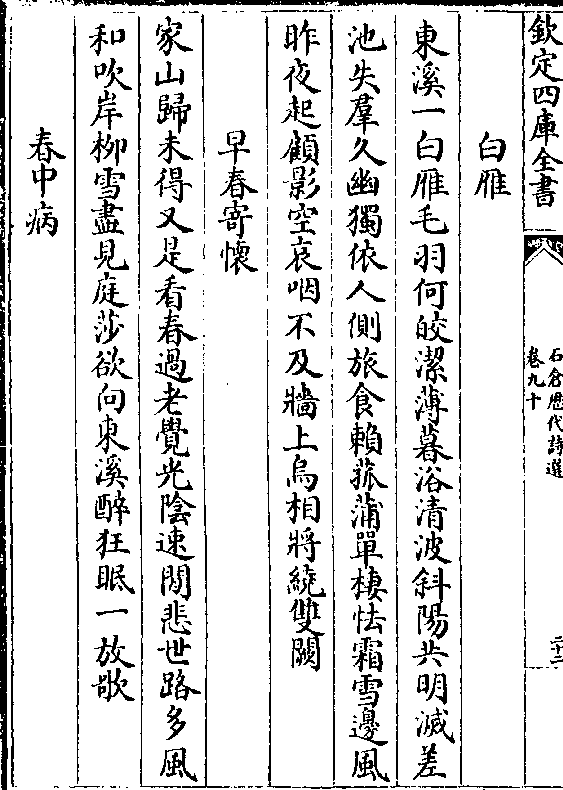 欽定四庫全書
石倉歷代詩選
卷九十
二十二
白雁
東溪一白雁毛羽何皎潔薄暮浴清波斜陽共明滅差
池失羣久幽獨依人側旅食賴菰蒲單棲怯霜雪邊風
昨夜起顧影空哀咽不及牆上烏相將繞雙闕
早春寄懷
家山歸未得又是看春過老覺光陰速閒悲世路多風
和吹岸柳雪盡見庭莎欲向東溪醉狂眠一放歌
春中病